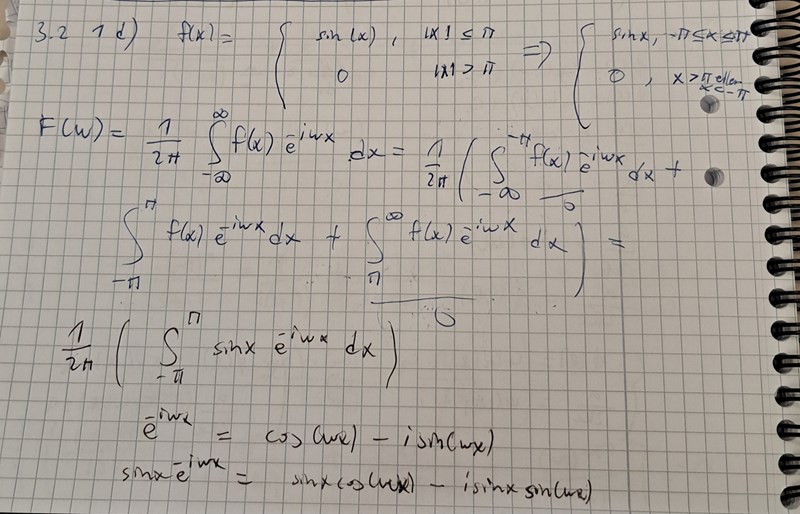 3.2 1 d) f(x) = { sin(x), |x| ≤ π ⇒ { sinx, -π≤x≤π
0 |x| > π 0, x>π eller x<-π
F(w) = 1/2π ∫_{-∞}^{∞} f(x) e^{-iwx} dx = 1/2π ( ∫_{-∞}^{-π} f(x) e^{-iwx} dx +
0
∫_{-π}^{π} f(x) e^{-iwx} dx + ∫_{π}^{∞} f(x) e^{-iwx} dx ) =
0
1/2π ( ∫_{-π}^{π} sinx e^{-iwx} dx )
e^{-iwx} = cos(wx) - isin(wx)
sinx e^{-iwx} = sinxcos(wx) - isinx sin(wx)